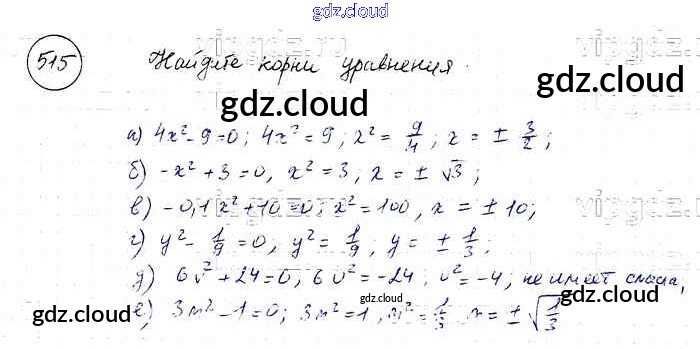 gdz.cloud
515 Найдите корни уравнения.
gdz.cloud
gdz.cloud
а) 4x² - 9 = 0; 4x² = 9, x² = 9/4, x = ± 3/2;
б) -x² + 3 = 0, x² = 3, x = ± √3;
в) -0,1x² + 10 = 0; x² = 100, x = ± 10;
г) y² - 1/9 = 0, y² = 1/9, y = ± 1/3;
д) 6v² + 24 = 0; 6v² = -24; v² = -4; не имеет смысла,
е) 3m² - 1 = 0; 3m² = 1, m² = 1/3 m = ± √1/3
gdz.cloud
gdz.cloud
gdz.cloud